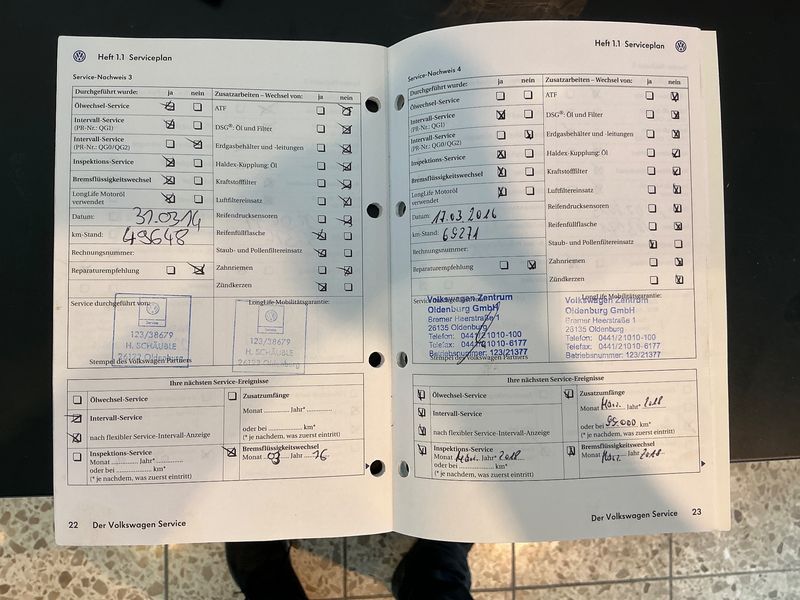 Heft 1.1 Serviceplan
Service-Nachweis 3
Durchgeführt wurde: ja nein
Ölwechsel-Service
Intervall-Service
(PR-Nr.: QG1)
Intervall-Service
(PR-Nr.: QG0/QG2)
Inspektions-Service
Bremsflüssigkeitswechsel
LongLife Motoröl
verwendet
Datum: 31.03.14
km-Stand: 49648
Rechnungsnummer:
Reparaturempfehlung
Zusatzarbeiten – Wechsel von: ja nein
ATF
DSG®: Öl und Filter
Erdgasbehälter und -leitungen
Haldex-Kupplung: Öl
Kraftstofffilter
Luftfiltereinsatz
Reifendrucksensoren
Reifenfüllflasche
Staub- und Pollenfiltereinsatz
Zahnriemen
Zündkerzen
Service durchgeführt von:
LongLife Mobilitätsgarantie:
Service
123/38679
H. SCHÄUBLE
26122 Oldenburg
Service
123/38679
H. SCHÄUBLE
26122 Oldenburg
Stempel des Volkswagen Partners
Ihre nächsten Service-Ereignisse
Ölwechsel-Service
Intervall-Service
nach flexibler Service-Intervall-Anzeige
Inspektions-Service
Monat ............ Jahr* ............
oder bei ............ km*
(* je nachdem, was zuerst eintritt)
Zusatzumfänge
Monat ............ Jahr* ............
oder bei ............ km*
(* je nachdem, was zuerst eintritt)
Bremsflüssigkeitswechsel
Monat 03 Jahr 16
22 Der Volkswagen Service
Heft 1.1 Serviceplan
Service-Nachweis 4
Durchgeführt wurde: ja nein
Ölwechsel-Service
Intervall-Service
(PR-Nr.: QG1)
Intervall-Service
(PR-Nr.: QG0/QG2)
Inspektions-Service
Bremsflüssigkeitswechsel
LongLife Motoröl
verwendet
Datum: 17.03.2016
km-Stand: 69271
Rechnungsnummer:
Reparaturempfehlung
Zusatzarbeiten – Wechsel von: ja nein
ATF
DSG®: Öl und Filter
Erdgasbehälter und -leitungen
Haldex-Kupplung: Öl
Kraftstofffilter
Luftfiltereinsatz
Reifendrucksensoren
Reifenfüllflasche
Staub- und Pollenfiltereinsatz
Zahnriemen
Zündkerzen
LongLife Mobilitätsgarantie:
Volkswagen Zentrum
Oldenburg GmbH
Bremer Heerstraße 1
26135 Oldenburg
Telefon: 0441/21010-100
Telefax: 0441/21010-6177
Betriebsnummer: 123/21377
Volkswagen Zentrum
Oldenburg GmbH
Bremer Heerstraße 1
26135 Oldenburg
Telefon: 0441/21010-100
Telefax: 0441/21010-6177
Betriebsnummer: 123/21377
Stempel des Volkswagen Partners
Ihre nächsten Service-Ereignisse
Ölwechsel-Service
Intervall-Service
nach flexibler Service-Intervall-Anzeige
Inspektions-Service
Monat März Jahr* 2018
oder bei ............ km*
(* je nachdem, was zuerst eintritt)
Zusatzumfänge
Monat März Jahr* 2018
oder bei 95.000 km*
(* je nachdem, was zuerst eintritt)
Bremsflüssigkeitswechsel
Monat März Jahr 2018
Der Volkswagen Service 23